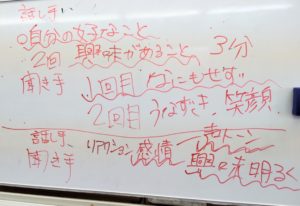 話し手
○自分の好なこと
2回 興味があること 3分
聞き手 1回目 なにもせず
2回目 うなずき 笑顔
話し手
聞き手 リアクション 感情 興味 明るく